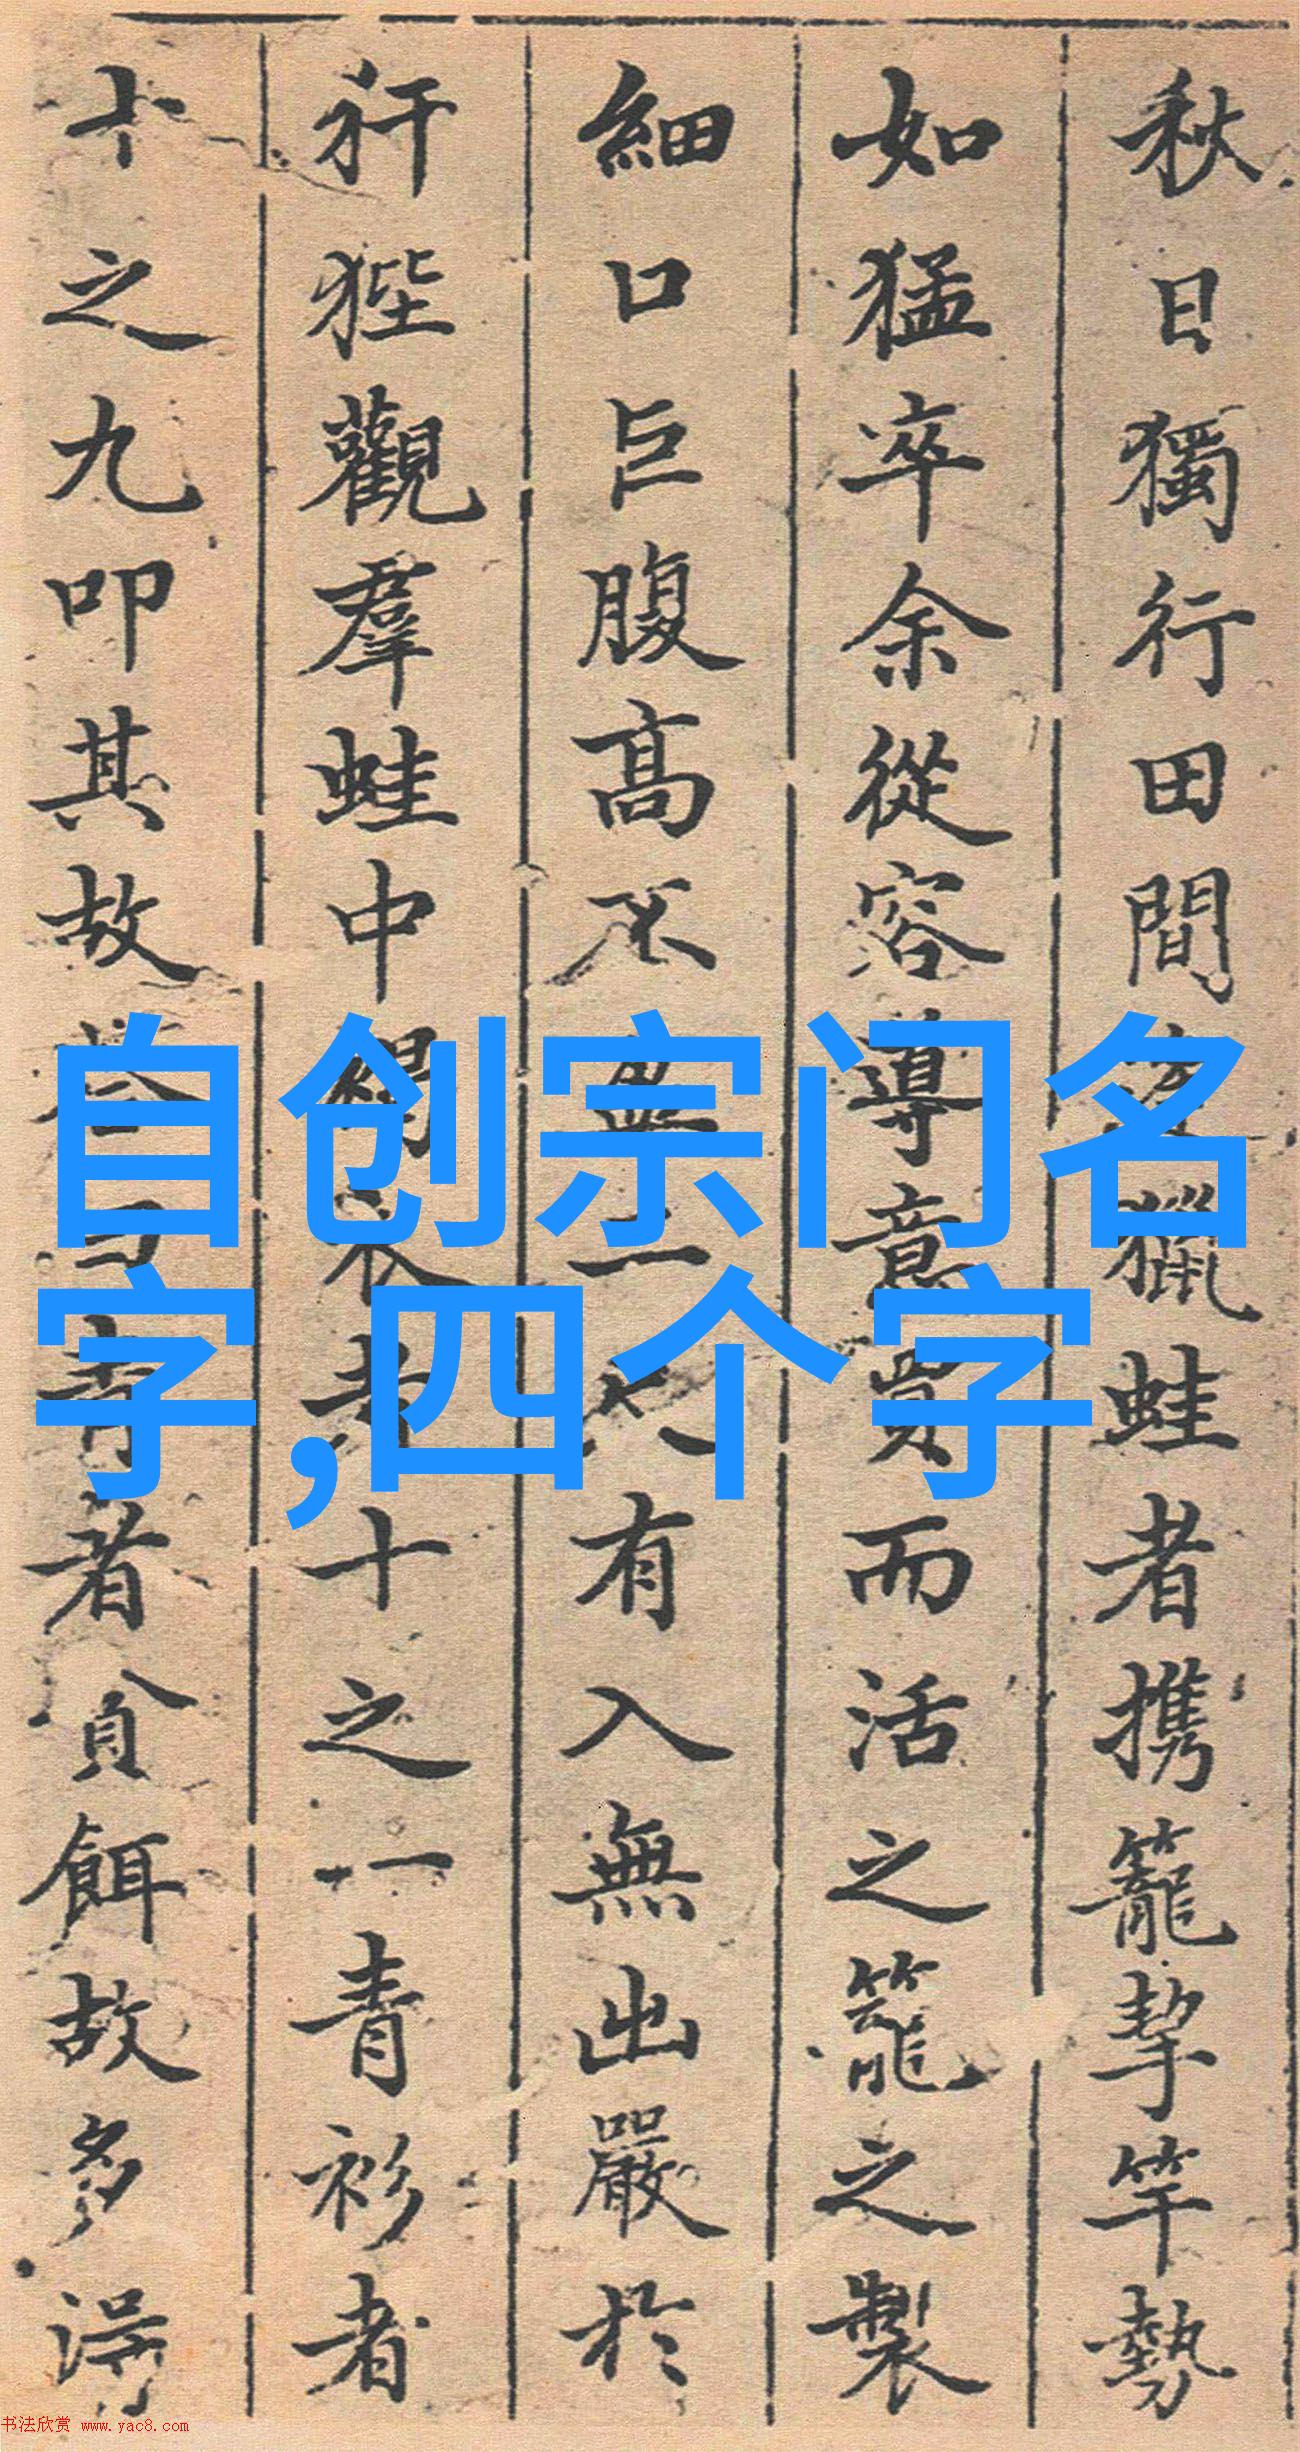 秋日獨行田間
獵蛙者携籠挈竿勢
如猛卒余從容導意
而活之籠之製
細口巨腹高不
一
有入無出嚴於
犴狴觀羣蛙中
衣者十之一青衫者
十之九叩其故
者貪餌故多得
自创宗门名
字,四个字
书法欣赏 www.yac8.com